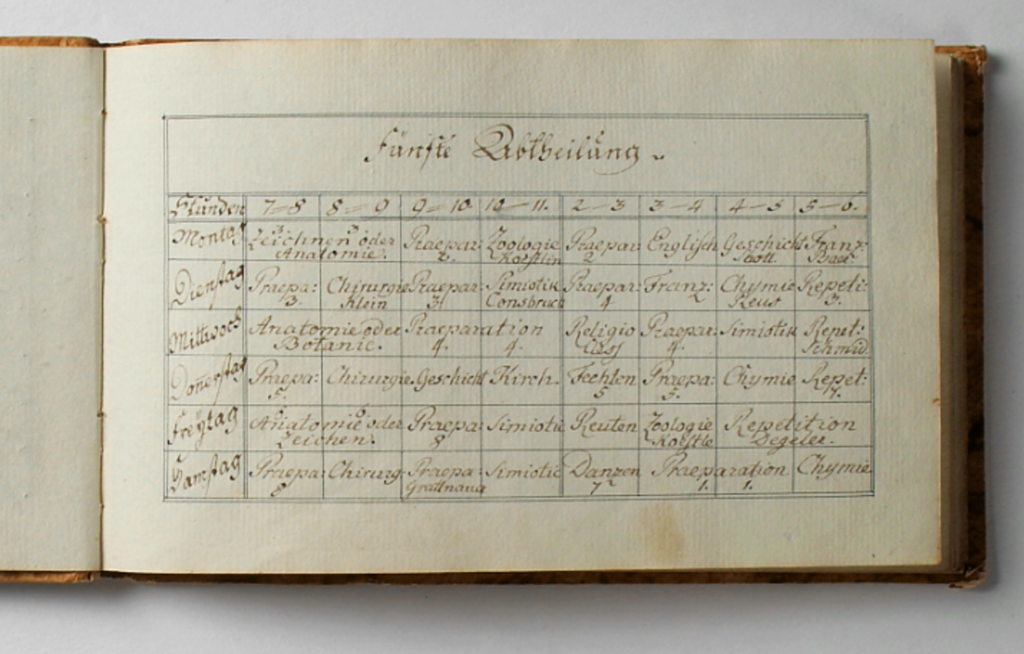 Fünfte Abtheilung
Stunden 7–8 8–9 9–10. 10–11. 2–3 3–4 4–5 5–6.
Montag Zeichnen oder Praepar: Zoologie Praepar: Englisch Geschicht Franz:
Anatomie. 2. Koestlin 2
Dienstag Praepa: Chirurgie Praepar: Simiotik Praepar: Franz: Chymie Repeti:
3. Klein 3 Consbruch 4 2 Reus 3.
Mittwoch Anatomie oder Praeparation Religio Praepar: Simiotik Repet:
Botanic. 4. 4. 4. Schmid.
Donerstag Praepa: Chirurgie Geschicht Kirch. Fechten Praepa: Chymie Repet:
5. 5 5. 7.
Freytag Anatomie oder Praepa: Simiotic Reuten Zoologie Repetition
Zeichen. 8 Koestle Degeler.
Samstag Praepa: Chirurg Praepa: Simiotic Danzen Praeparation Chymie
8 7 1. 1.